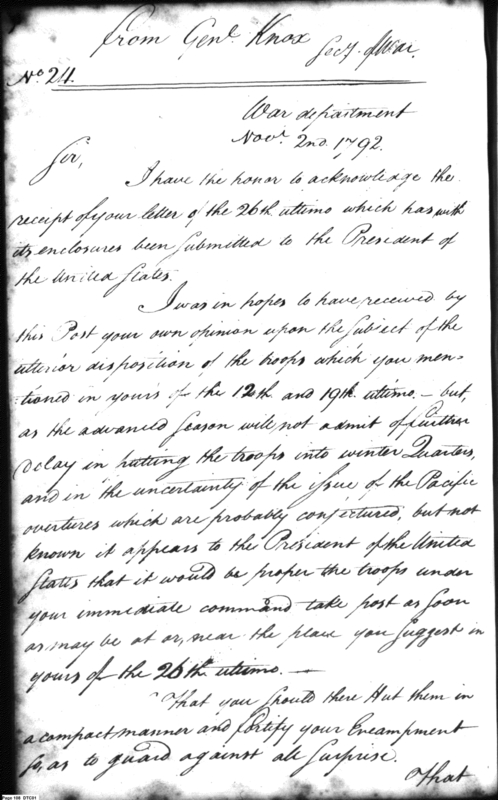 from Genl. Knox Secy. of War.
No. 24.
War department
Novr. 2nd. 1792.
Sir,
I have the honor to acknowledge the
receipt of your letter of the 26th ultimo which has with
its enclosures been submitted to the President of
the United States.
I was in hopes to have received by
this Post your own opinion upon the subject of the
ulterior disposition of the troops which you men-
tioned in yours of the 12th and 19th ultimo. — but,
as the advanced season will not admit of further
delay in putting the troops into winter Quarters,
and in the uncertainty of the issue of the Pacific
overtures which are probably conjectured, but not
known it appears to the President of the United
States that it would be proper the troops under
your immediate command take post as soon
as may be at or, near the place you suggest in
yours of the 26th ultimo. —
That you should there Hut them in
a compact manner and fortify your Encampment
so, as to guard against all surprise.
That
Page 198 DTC01